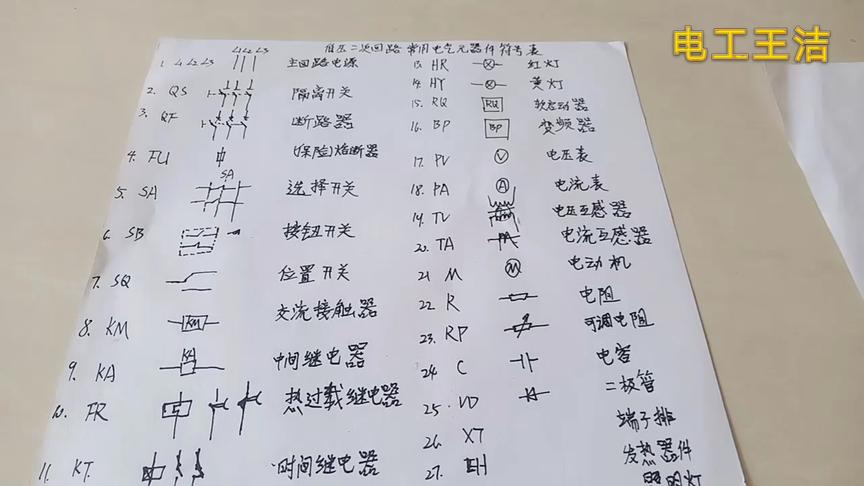 电工王洁
低压二次回路常用电气元器件符号表
L1 L2 L3
1. L1 L2 L3 主回路电源
2. QS 隔离开关
3. QF 断路器
4. FU (保险)熔断器
5. SA SA 选择开关
6. SB 按钮开关
7. SQ 位置开关
8. KM KM 交流接触器
9. KA KA 中间继电器
10. FR 热过载继电器
11. KT 时间继电器
13. HR 红灯
14. HY 黄灯
15. RQ RQ 软启动器
16. BP BP 变频器
17. PV V 电压表
18. PA A 电流表
19. TV 电压互感器
20. TA 电流互感器
21 M M 电动机
22. R 电阻
23. RP 可调电阻
24. C 电容
25. VD 二极管
26. XT 端子排
27. EH 发热器件
照明灯